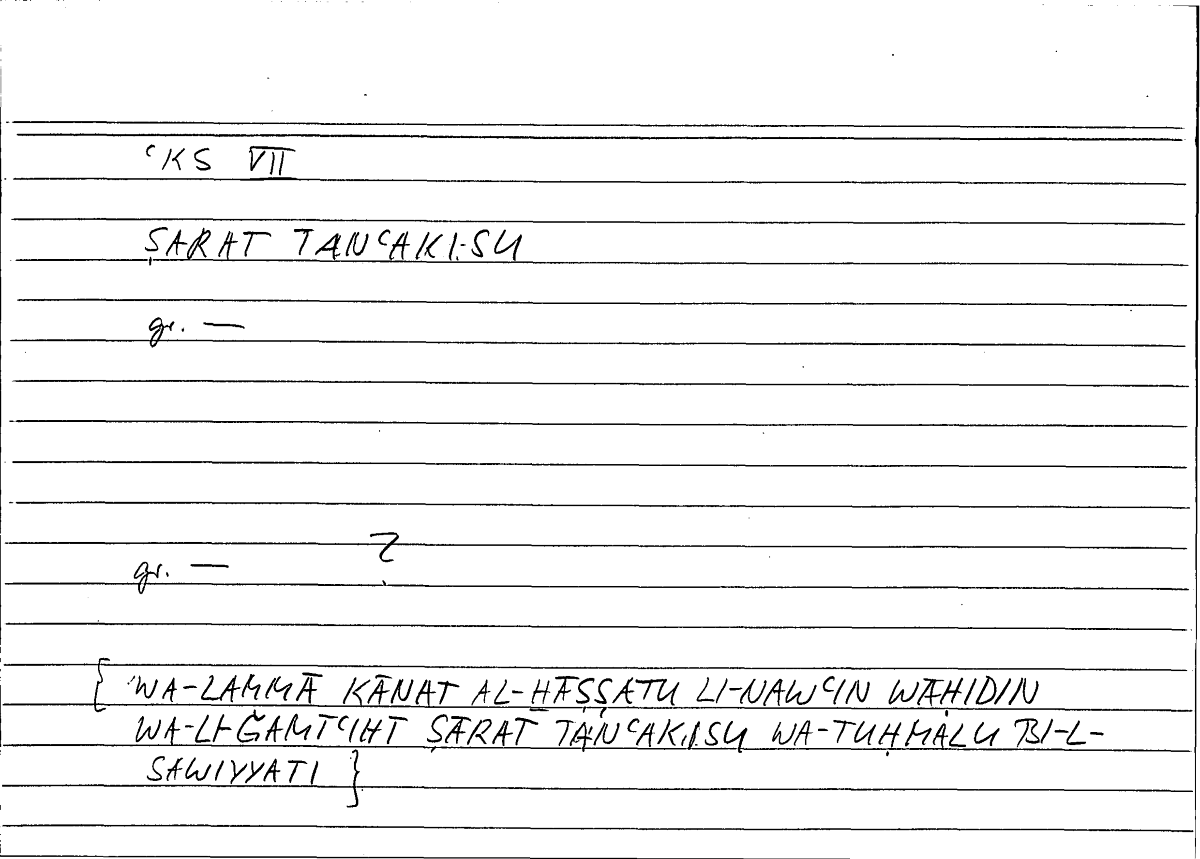 ʿKS VII
ṢARAT TANʿAKISU
gr. —
?
gr. —
{ WA-LAMMĀ KĀNAT AL-ḪĀṢṢATU LI-NAWʿIN WĀḤIDIN
WA-LI-ǦAMĪʿIHI ṢĀRAT TANʿAKISU WA-TUḤMALU BI-L-
SAWIYYATI }